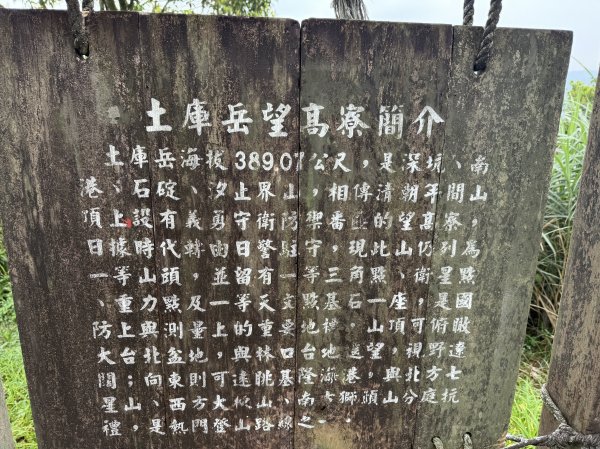 土庫岳望高寮簡介
土庫岳海拔389.07公尺，是深坑、南
港、石碇、汐止界山，相傳清朝年間山
頂上設有義勇守衛防禦番匪的望高寮，
日據時代轉由日警駐守，現此山仍列為
一等山頭，並留有一等三角點、衛星點
、重力點及一等天文點基石一座，是國
防上與測量上的重要地標，山頂可俯瞰
大台北盆地與林口台地，望，視野遼
闊；向東則可遠眺基隆海港，與北方七
星山、西方大山、南獅頭山分庭抗
禮，是熱門登山路線之一。